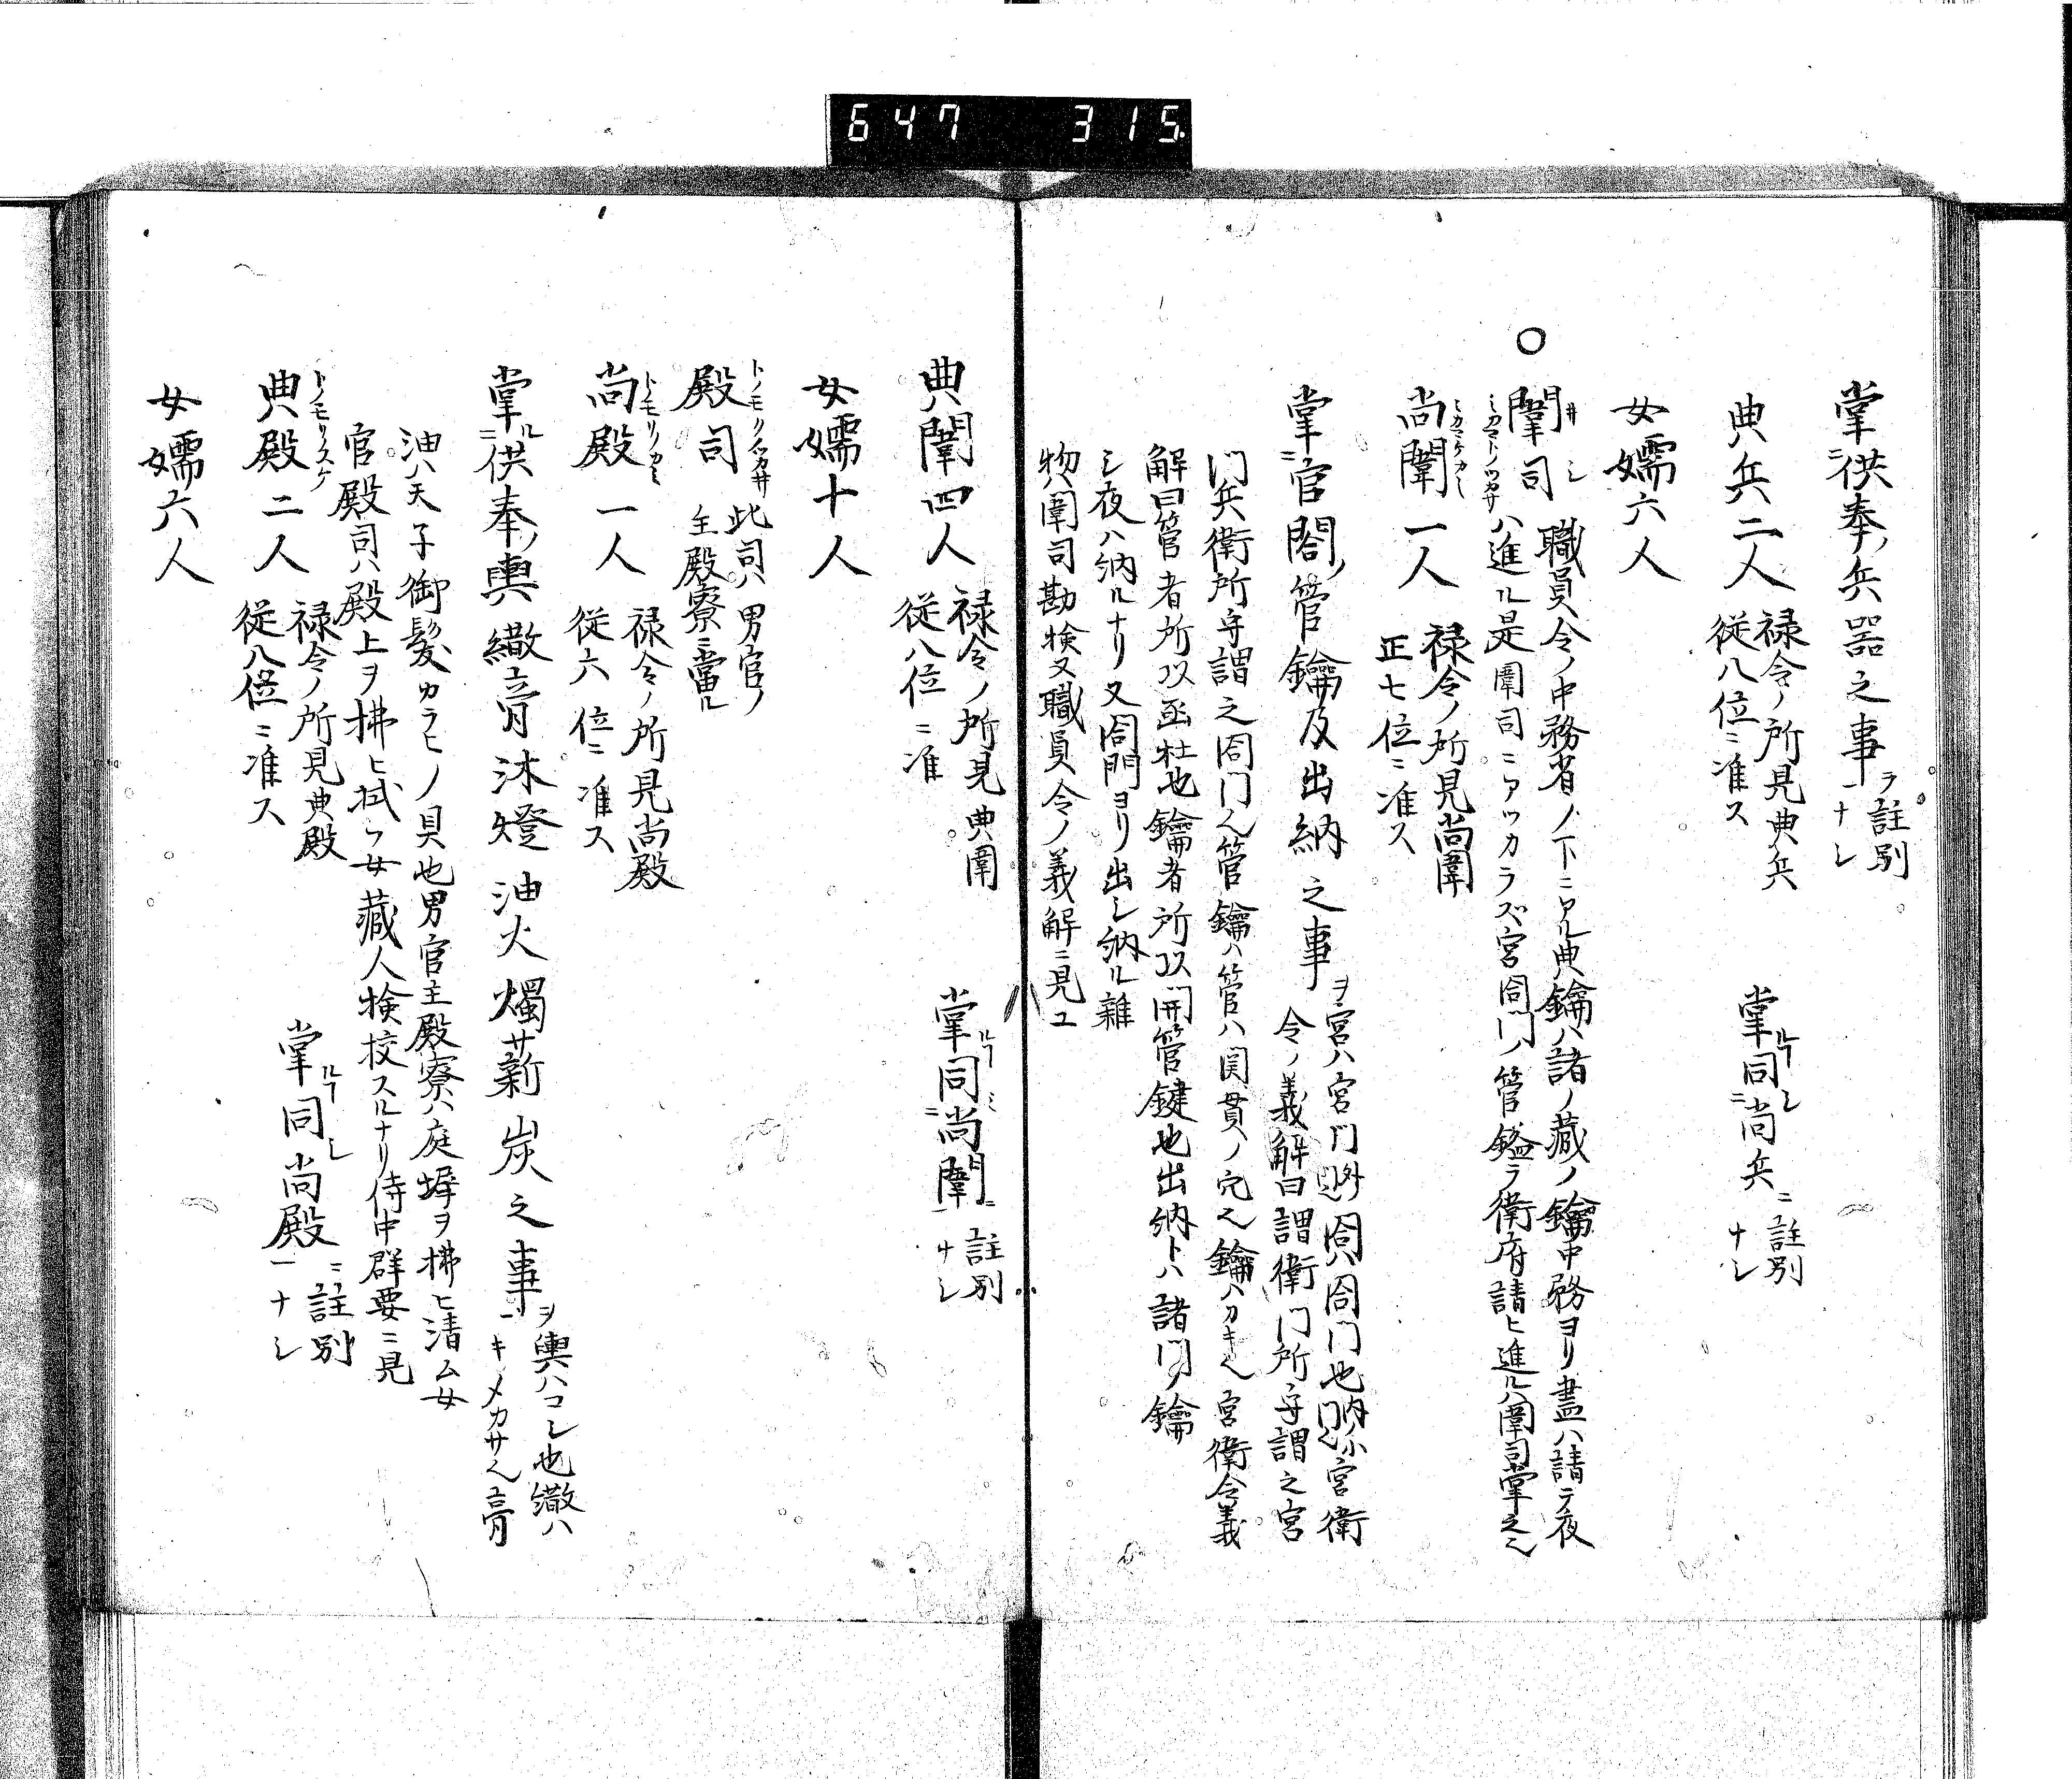 647 315
掌ニ供奉ノ兵器之事ヲ一 註別ナシ
典兵二人 禄令ノ所見典兵従八位ニ准ス 掌ルコト同シ尚兵ニ 註別ナシ
女嬬六人
○闈司 職員令ノ中務省ノ下ニアル典鑰ハ諸ノ蔵ノ鑰中務ヨリ晝ハ請テ夜
ハ進ル是闈司ニアツカラズ宮閤門ノ管鎰ヲ衛府請ヒ進ルハ闈司掌之也
尚闈一人 禄令ノ所見尚闈正七位ニ准ス
掌ニ宮閤ノ管鑰及出納之事ヲ 宮ハ宮門
令ノ義解曰謂衛門所守謂之宮
門兵衛所守謂之閤門也管鑰ハ管ハ関貫ノ穴也鑰ハカキ也宮衛令義
解曰管者所以函牡也鑰者所以開管鍵也出納トハ諸門ノ鑰
シ夜ハ納ルナリ又閤門ヨリ出シ納ル雜
物闈司勘検又職員令ノ義解ニ見ユ
典闈四人 禄令ノ所見典闈従八位ニ准 掌ルコト同ニ尚闈ニ一 註別ナシ
女嬬十人
殿司 此司ハ男官ノ主殿寮ニ當ル
尚殿一人 トノモリノカミ 禄令ノ所見尚殿従六位ニ准ス
掌ルニ供奉ノ輿繖膏沐燈油火燭薪炭之事ヲ一 輿ハコシ也繖ハ
キヌカサ也膏
油ハ天子御髪カラヒノ具也男官主殿寮ハ庭墀ヲ拂ヒ清ム女
官殿司ハ殿上ヲ拂ヒ拭フ女蔵人検校スルナリ侍中群要ニ見
典殿二人 トノモリノスケ 禄令ノ所見典殿従八位ニ准ス 掌ルコト同シ尚殿ニ一 註別ナシ
女嬬六人